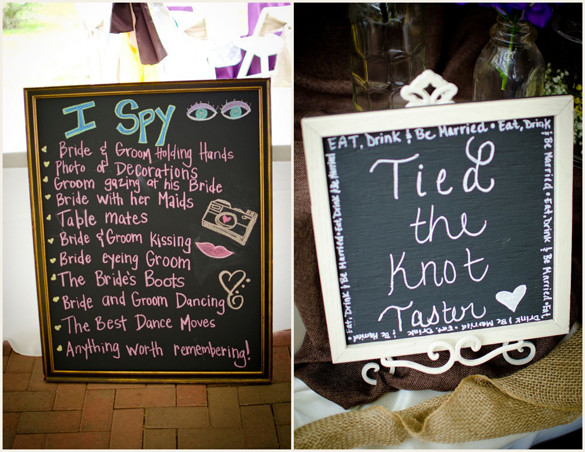 I SPY
Bride & Groom Holding Hands
Photo of Decorations
Groom gazing at his Bride
Bride with her Maids
Table mates
Bride & Groom Kissing
Bride eyeing Groom
The Bride's Boots
Bride and Groom Dancing
The Best Dance Moves
Anything worth remembering!
EAT, Drink & Be Married • Eat, Drink
& Be Married • Eat, Drink & Be Married • Eat
Tied
the
Knot
Taster
Drink & Be Married • Eat, Drink &
Eat, Drink & Be Married • Eat, Drink & Be Married